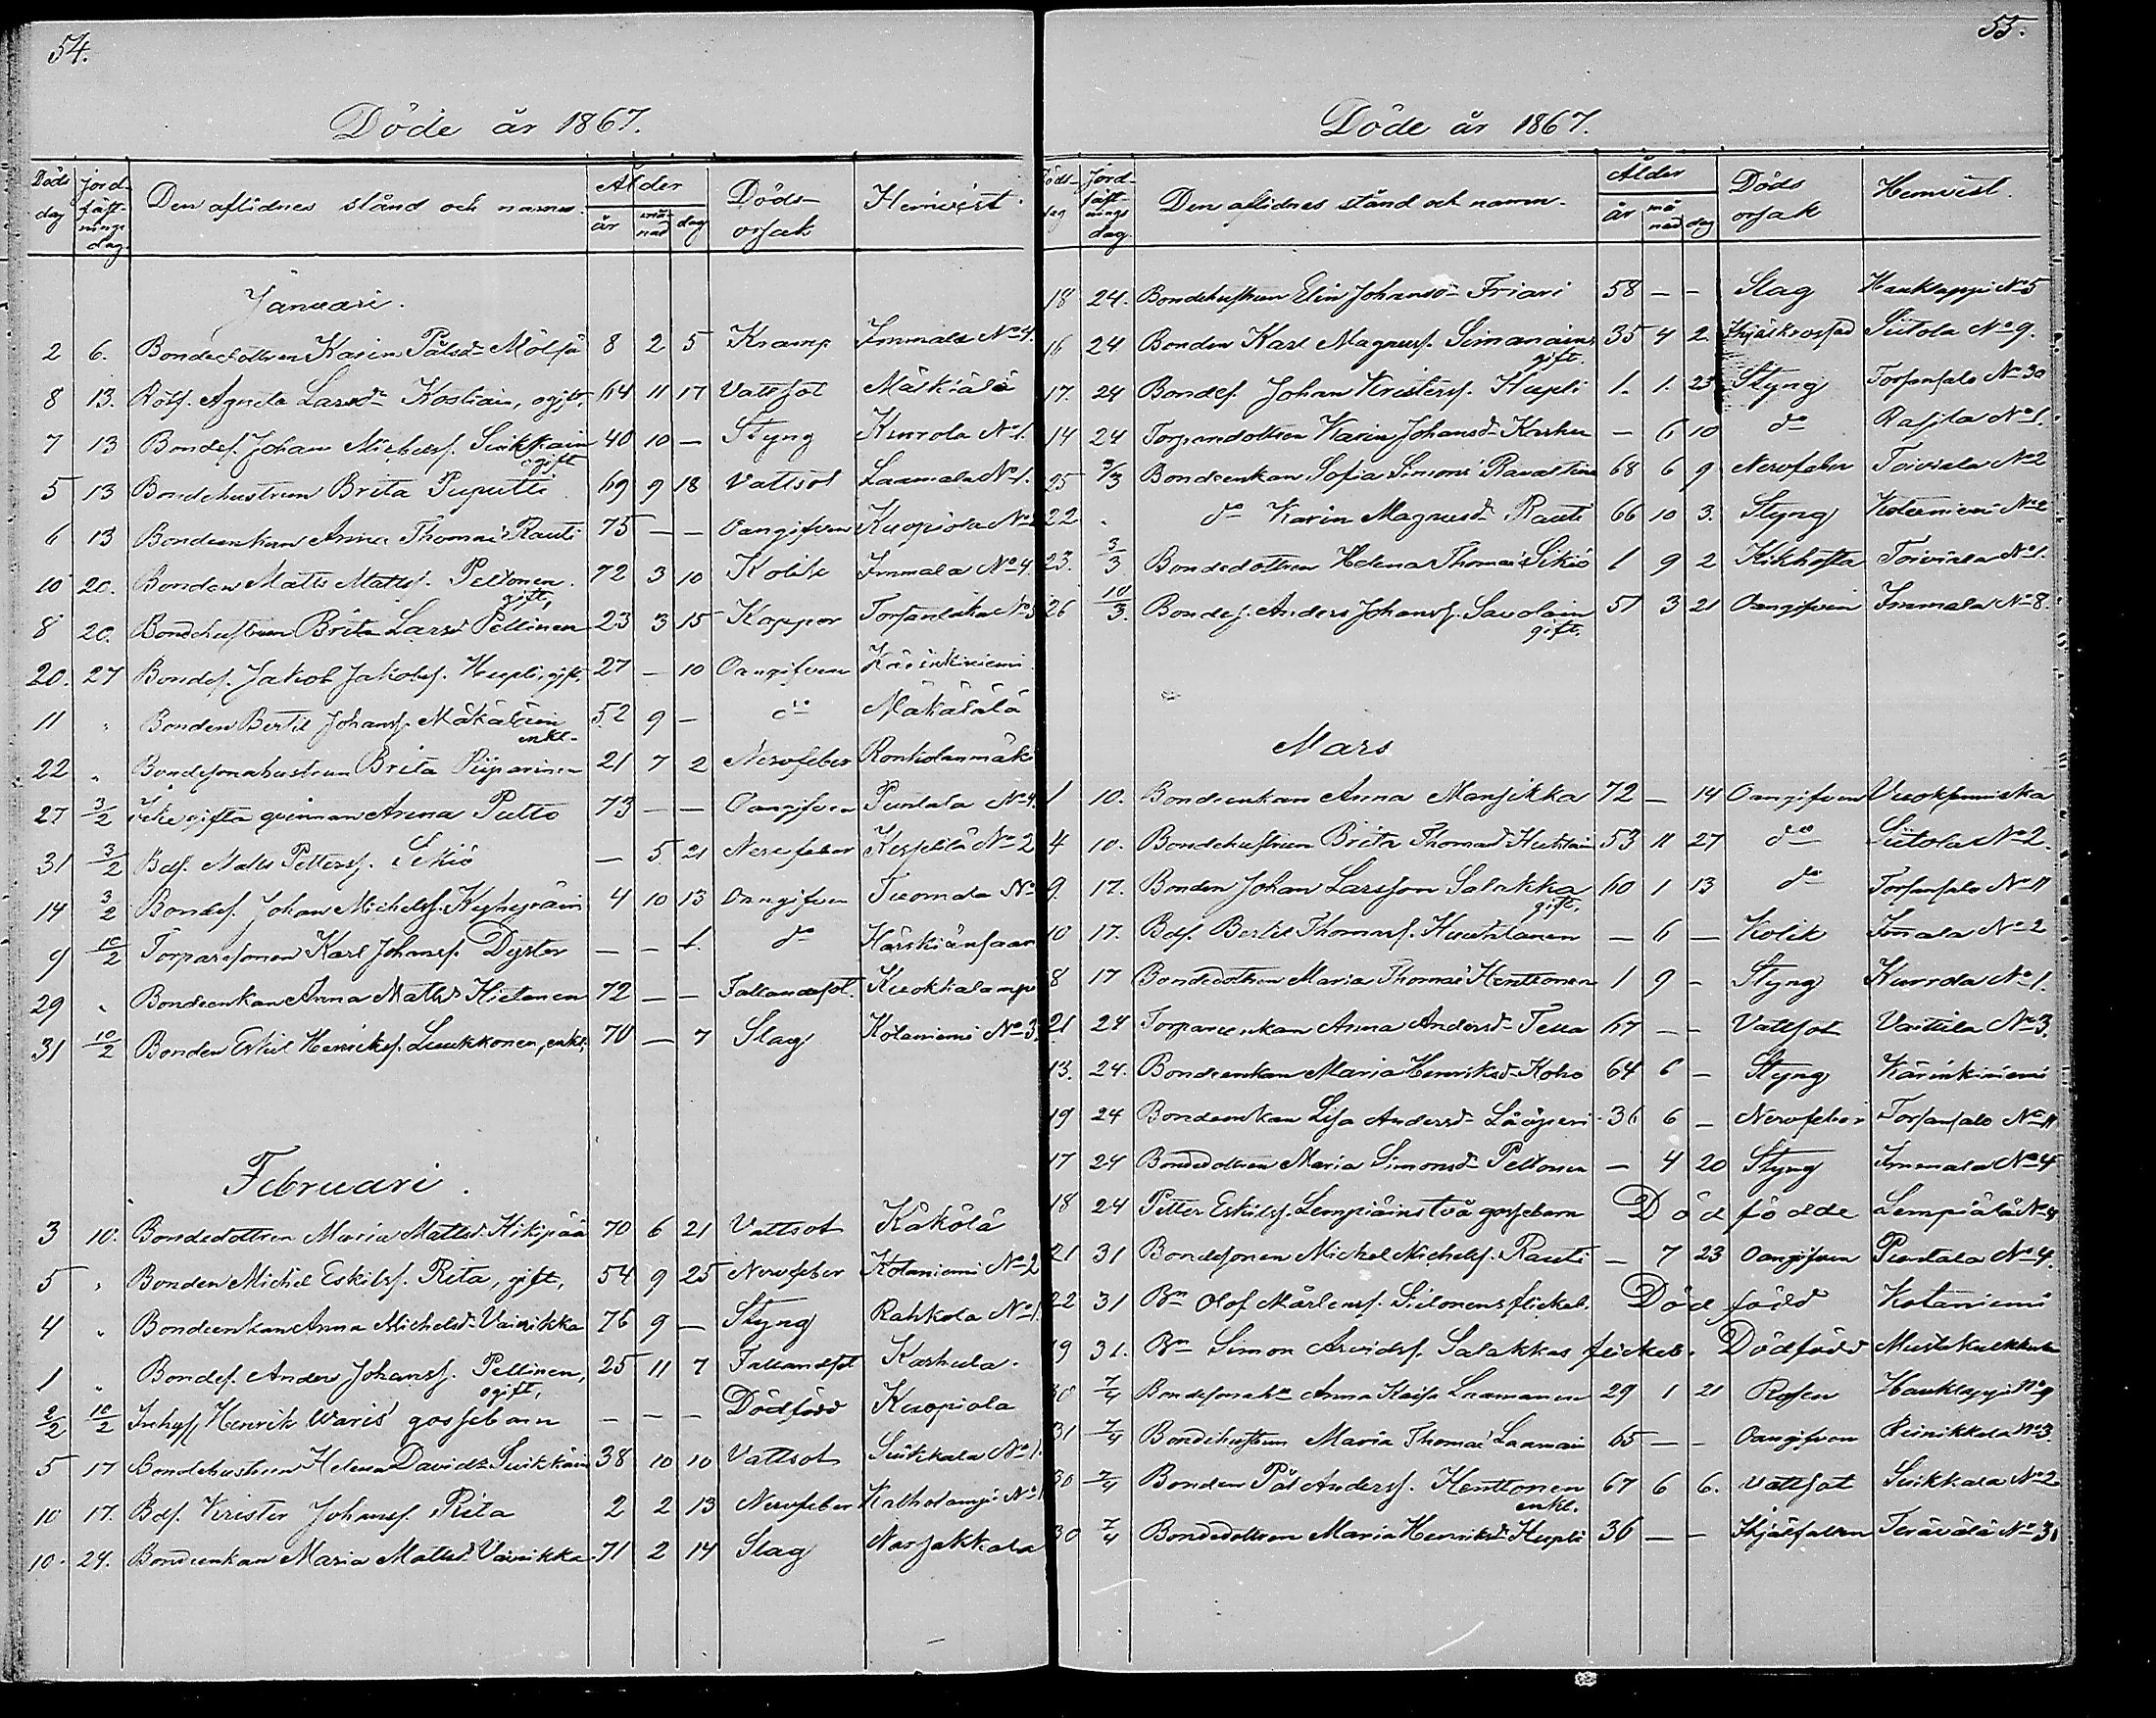 54.
Döde år 1867.
Döds dag | Jord-fäst-nings dag. | Den aflidnes stånd och namn. | Ålder år | må-nad | dag | Döds-orsak | Hemvist.
Januari.
2 6. Bondedottren Karin Pålsdr Mölsä 8 2 5 Kramp Immala No 4.
8 13. Rotf. Agneta Larsdr Kostiain, ogift, 64 11 17 Vattsot Mälkiälä
7 13 Bondes. Johan Michelss. Suikkain ogift 40 10 — Styng Kurrola No 1.
5 13 Bondehustrun Brita Puputti 69 9 18 Vattsot Laamala No 1.
6 13 Bondeenkan Anna Thomæ Rauti 75 — — Oangifven Kuopiola No
10 20. Bonden Matts Mattss. Peltonen. gift, 72 3 10 Kolik Immala No 4.
8 20. Bondehustrun Brita Larsd Pellinen 23 3 15 Koppor
20. 27 Bondes. Jakob Jakobss. Hupli, gift, 27 — 10 Oangifven Kärinkiniemi
11 " Bonden Bertil Johanss. Mäkäläin enkl. 52 9 — do Mäkälälä
22 " Bondesonahustrun Brita Piiparinen 21 7 2 Nervfeber Ronkolanmäki
27 3/2 icke gifta qvinnan Anna Putto 73 — — Oangifven Puntala No 4.
31 3/2 Bds. Matts Petterss. Sikiö — 5 21 Nervfeber Keskilä No 2
14 3/2 Bondes. Johan Michelss. 4 10 13 Oangifven Tuomala No
9 10/2 Torparesonen Karl Johanss. Dyster — — 1. do Härskiänsaari
29 " Bondeenkan Anna Mattsd Hietanen 72 — — Fallandesot. Kuokkalampi
31 10/2 Bonden Eskil Henrickss. Luukkonen, enkl, 70 — 7 Slag Kotaniemi No 3.
Februari.
3 10. Bondedottren Maria Mattsd. Hikipää 70 6 21 Vattsot Käkölä
5 " Bonden Michel Eskilss. Rita, gift, 54 9 25 Nervfeber Kotaniemi No 2
4 " Bondeenkan Anna Michelsd. Vainikka 76 9 — Styng Rahkola No 1.
1 " Bondes. Anders Johanss. Pellinen, ogift, 25 11 7 Fallandsot Karhula.
2/2 10/2 Inhys Henrik Waris' gossebarn — — — Dödfödd Kuopiola
5 17 Bondehustrun Helena Davidsd Suikkain 38 10 10 Vattsot Suikkala No 1.
10 17. Bds. Krister Johanss. Rita 2 2 13 Nervfeber
10. 24. Bondeenkan Maria Mattsd. Vainikka 71 2 14 Slag Nosjakkala
55.
Döde år 1867.
Döds-dag | Jord-fäst-nings dag. | Den aflidnes stånd och namn. | Ålder år | må nad | dag | Döds orsak | Hemvist.
18 24. Bondehustrun Elin Johansdr Friari 58 — — Slag Hauklappi No 5
16 24 Bonden Karl Magnuss. Simanainen gift. 35 4 2. Ihjälkrossad Siitola No 9.
17. 24 Bondes. Johan Kristerss. Hupli 1. 1. 23 Styng Torsansalo No 30
14 24 Torparedottren Karin Johansdr Karhu — 6 10 do Rasila No 1.
25 3/3 Bondeenkan Sofia Simons Ravattinen 68 6 9 Nervfeber Toiviala No 2
22 " do Karin Magnusdr Rauti 66 10 3. Styng Kotaniemi No 2
23. 3/3 Bondedottren Helena Thomæ Sikiö 1 9 2 Kikhosta Toiviala No 1.
26 10/3. Bondes. Anders Johanss. Savolain gift. 51 3 21 Oangifven Immala No 8.
Mars
1 10. Bondeenkan Anna Mansikka 72 — 14 Oangifven Vuoksenniska
4 10. Bondehustrun Brita Thomasd Huhtain 53 11 27 do Siitola No 2.
9. 17. Bonden Johan Larsson Salakka gift. 60 1 13 do Torsansalo No 11
10 17. Bds. Bertil Thomass. Huuhtanen — 6 — Kolik Immala No 2
8 17 Bondedottren Maria Thomæ Henttonen 1 9 — Styng Kurrola No 1.
21 24 Torpareenkan Anna Andersdr Teua 67 — — Vattsot Vaittila No 3.
13. 24. Bondeenkan Maria Henriksd. Koho 64 6 — Styng Kärinkiniemi
19 24 Bondeenkan Lisa Andersdr Lääperi 36 6 — Nervfeber Torsansalo No 11
17 24 Bondedottren Maria Simonsdr Peltonen — 4 20 Styng Immala No 4
18 24 Petter Eskilss. Lempiäins två gossebarn Dödfödde Lempiälä No 4
21 31 Bondesonen Michel Michelss. Rauti — 7 23 Oangifven Puntala No 4.
22 31 Bn Olof Mårtenss. Siitonens flickeb. Dödfödd Kotaniemi
19 31. Bn Simon Arvidss. Salakkas flickeb. Dödfödd
30 7/4 Bondesonahu Anna Kaisa Laamanen 29 1 21 Rosen Hauklappi No 9
31 7/4 Bondehustrun Maria Thomæ Laamain 65 — — Oangifven Reinikkala No 3.
30 7/4 Bonden Pål Anderss. Henttonen enkl. 67 6 6. Vattsot Suikkala No 2
30 7/4 Bondedottren Maria Henriksd Hupli 36 — — Ihjälfallen Terävälä No 31